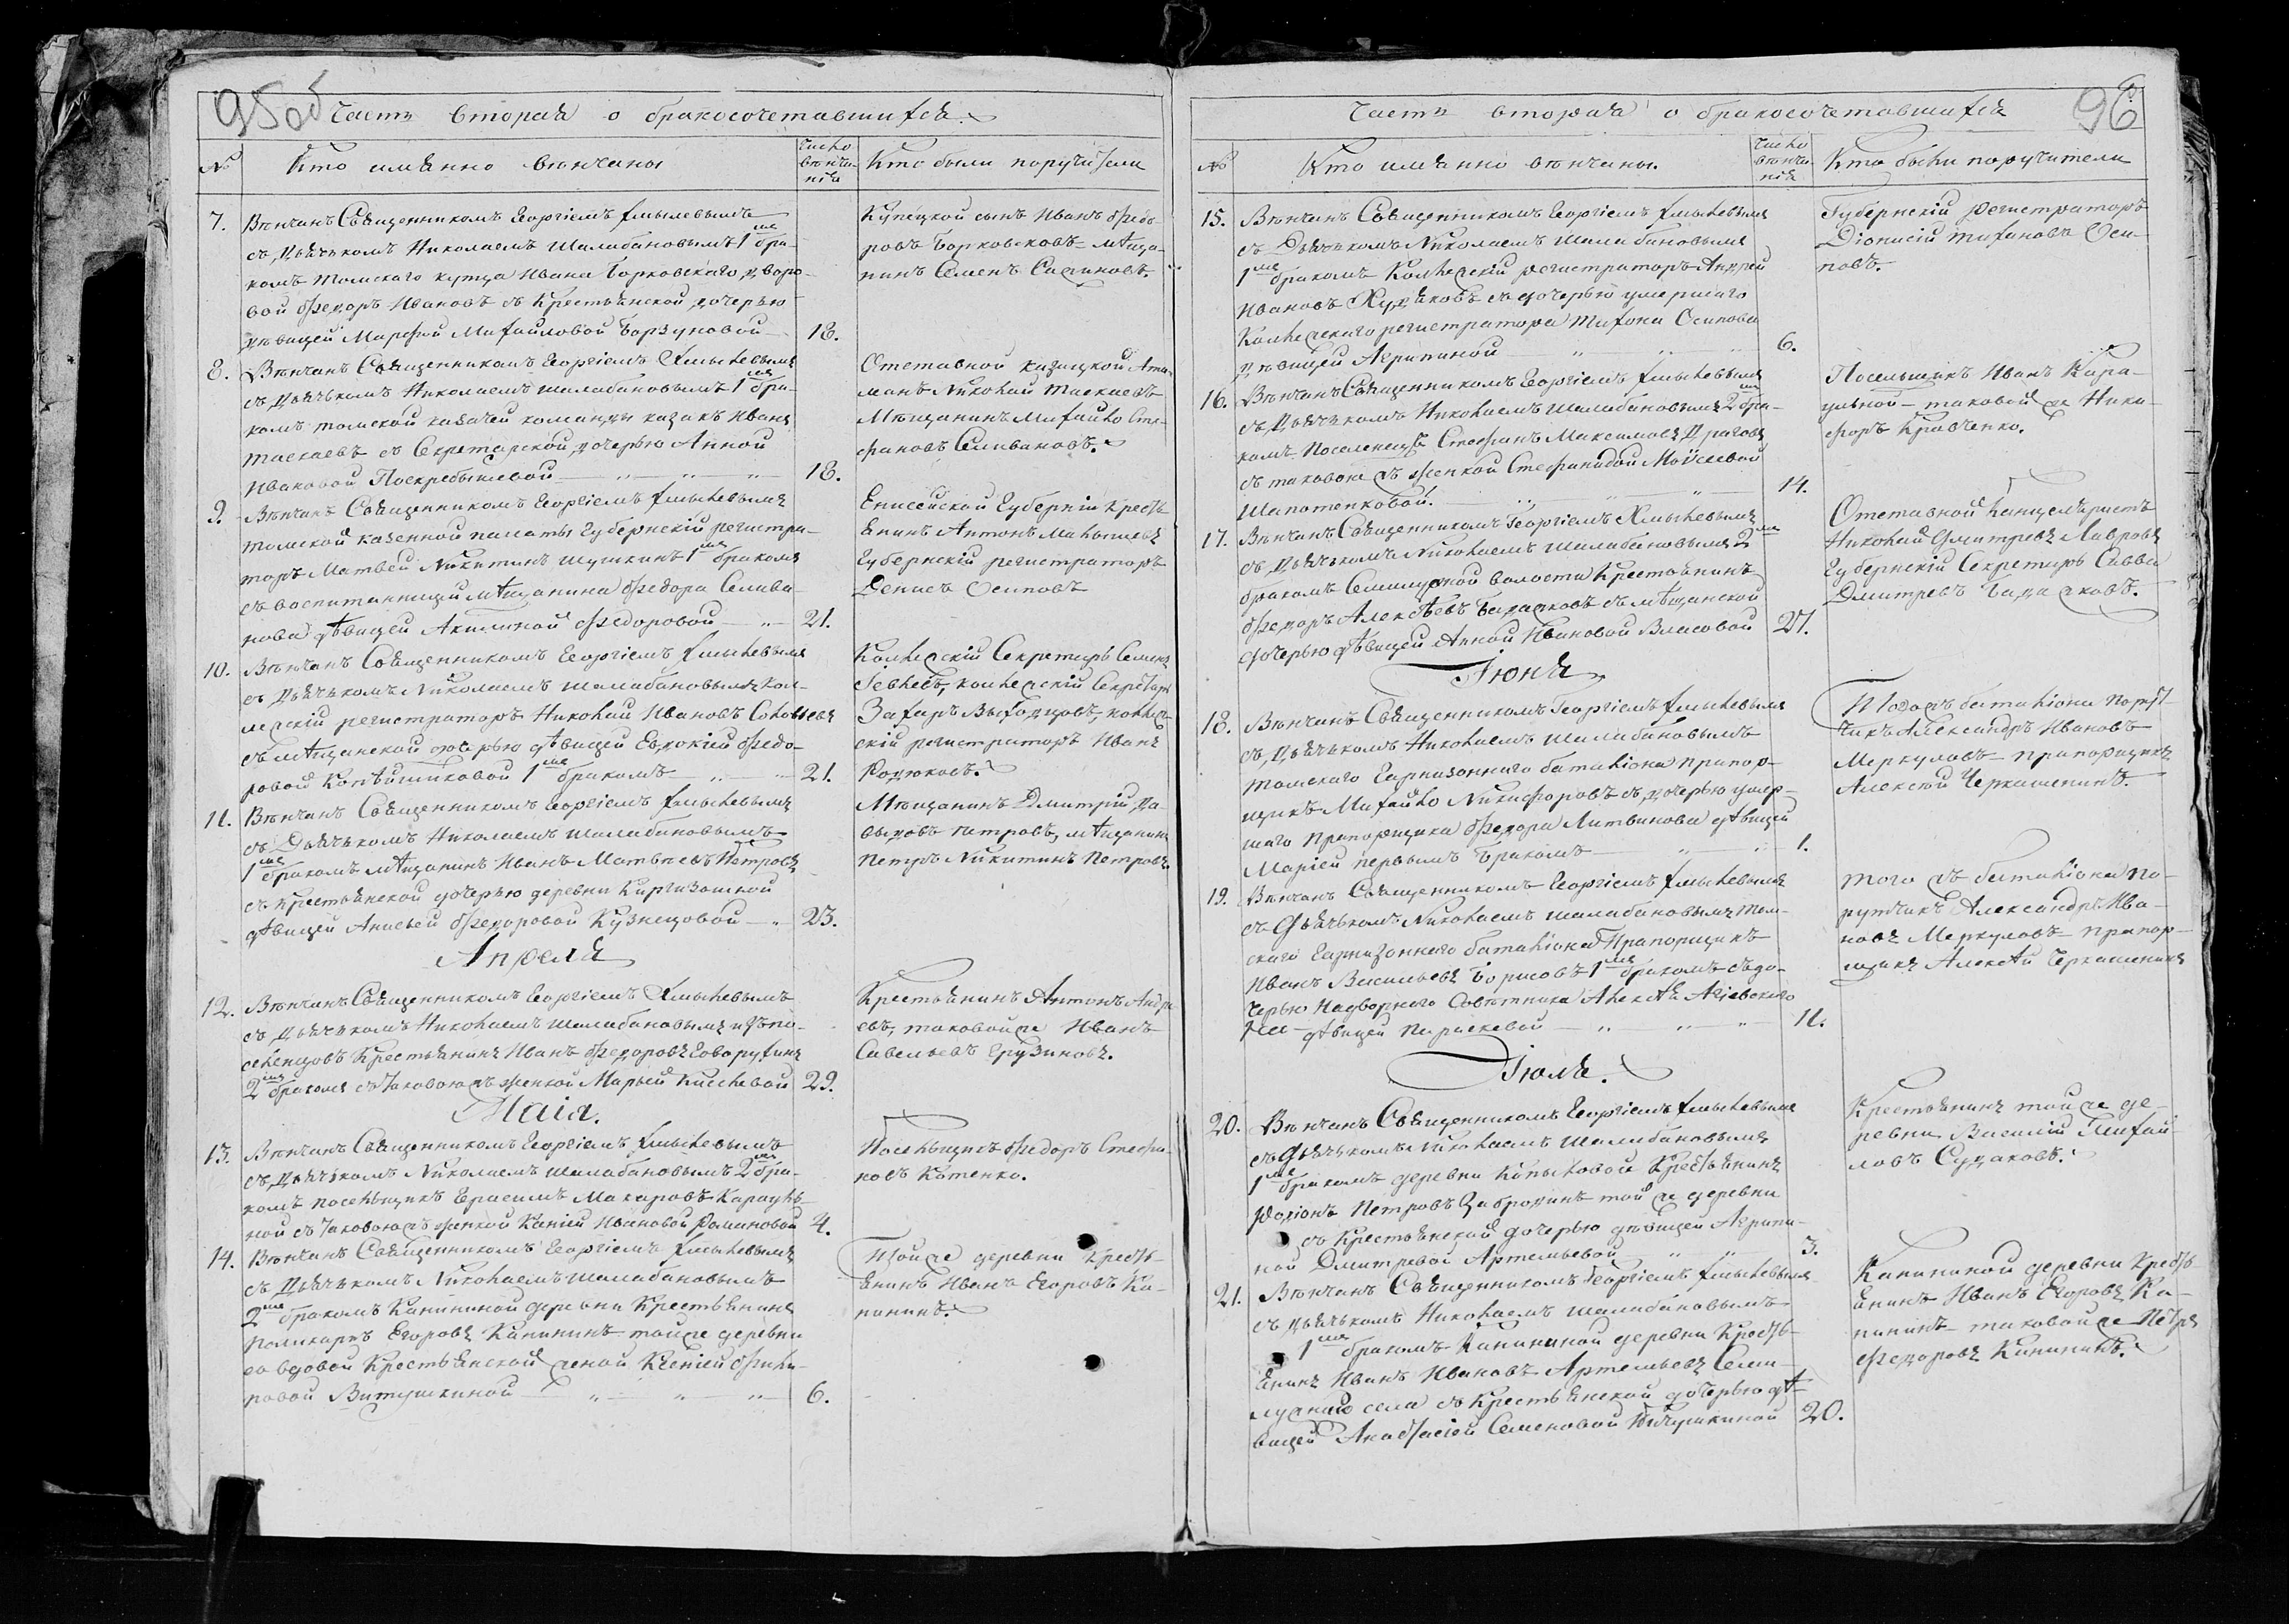 95об
Часть вторая о бракосочетавшихся
№
Кто имянно венчаны
Число
венча-
нія
Кто были поручители
7.
Венчанъ Священникомъ Георгіемъ Хмылевымъ
съ Дьячькомъ Николаемъ Шалабановымъ 1мъ бра-
комъ томскаго купца Ивана Борковскаго дворо-
вой Федоръ Ивановъ съ Крестьянской дочерью
девицей Марфой Михайловой Борзуновой
18.
Купецкой сынъ Иванъ Федо-
ровъ Борковсковъ – меща-
нинъ Семенъ
8.
Венчанъ Священникомъ Георгіемъ Хмылевымъ
съ Дьячькомъ Николаемъ Шалабановымъ 1мъ бра-
комъ томской казачей команды казакъ Иванъ
Таскаевъ съ Секретарской дочерью Анной
Ивановой Поскребышевой
18.
Отставной казацкой Ата-
манъ Николай Таскаевъ
Мещанинъ Михайло Сте-
фановъ Селивановъ.
9.
Венчанъ Священникомъ Георгіемъ Хмылевымъ
томской казенной палаты Губернскій регистра-
торъ Матвей Никитинъ Шушкинъ 1мъ бракомъ
съ воспитанницей мѣщанина Федора Селива-
нова дѣвицей Акилиной Федоровой
21.
Енисейской Губерніи кресть-
янинъ Антонъ
Губернскій регистраторъ
Денисъ Осиповъ
10.
Венчанъ Священникомъ Георгіемъ Хмылевымъ
съ Дьячькомъ Николаемъ Шалабановымъ Кол-
лежскій регистраторъ Николай Ивановъ Соловьевъ
съ мѣщанской дочерью дѣвицей Евдокіей Федо-
ровой Копѣйшиковой 1мъ бракомъ
21.
Коллежскій Секретарь Семенъ
коллежскій Секретарь
Захаръ Выходцовъ, коллеж-
скій регистраторъ Иванъ
Родюковъ.
11.
Венчанъ Священникомъ Георгіемъ Хмылевымъ
съ Дьячькомъ Николаемъ Шалабановымъ
1мъ бракомъ мѣщанинъ Иванъ Матвеевъ Петровъ
съ крестьянской дочерью деревни Киргизошной
дѣвицей Анисьей Федоровой Кузнецовой
23.
Мещанинъ Дмитрій Да-
выдовъ Петровъ, мѣщанинъ
Петръ Никитинъ Петровъ.
Апреля
12.
Венчанъ Священникомъ Георгіемъ Хмылевымъ
съ Дьячькомъ Николаемъ Шалабановымъ изъ по-
селенцовъ Крестьянинъ Иванъ Федоровъ Говорухинъ
2мъ бракомъ съ таковою жъ женкой Марьей Киселевой
29.
Крестьянинъ Антонъ Андре-
евъ, таковой же Иванъ
Савельевъ Грузиновъ.
Маія.
13.
Венчанъ Священникомъ Георгіемъ Хмылевымъ
съ Дьячькомъ Николаемъ Шалабановымъ 2мъ бра-
комъ поселыцикъ Герасимъ Макаровъ Карауль-
ной съ таковою жъ женкой Ивановой Романовой
4.
Поселыцикъ Федоръ Стефа-
новъ Котенко.
14.
Венчанъ Священникомъ Георгіемъ Хмылевымъ
съ Дьячькомъ Николаемъ Шалабановымъ
2мъ бракомъ Капининой деревни Крестьянинъ
Поликарпъ Егоровъ Капининъ той же деревни
со вдовой Крестьянской женой Ксеніей Фила-
товой Витушкиной
6.
Той же деревни Кресть-
янинъ Иванъ Егоровъ Ка-
пининъ.
96
Часть вторая о бракосочетавшихся
№
Кто имянно венчаны.
Число
венча-
нія
Кто были поручители
15.
Венчанъ Священникомъ Георгіемъ Хмылевымъ
съ Дьячькомъ Николаемъ Шалабановымъ
1мъ бракомъ Коллежскій регистраторъ Андрей
Ивановъ Худяковъ съ дочерью умершаго
Коллежскаго регистратора Тихона Осипова
девицей Агрипиной
6.
Губернскій регистраторъ
Діонисій Тихановъ Оси-
повъ.
16.
Венчанъ Священникомъ Георгіемъ Хмылевымъ
съ Дьячькомъ Николаемъ Шалабановымъ 2мъ бра-
комъ Поселенецъ Стефанъ Максимовъ
съ таковою жъ женкой Стефанидой Моисеевой
Шапотенковой.
14.
Поселыцикъ Иванъ Кара-
ульной – таковой же Ники-
форъ Кравченко.
17.
Венчанъ Священникомъ Георгіемъ Хмылевымъ
съ Дьячькомъ Николаемъ Шалабановымъ 2мъ
бракомъ Семилужной волости Крестьянинъ
Федоръ Алексѣевъ съ мѣщанской
дочерью дѣвицей Анной Ивановой Власовой
27.
Отставной Канцеляристъ
Николай Дмитревъ Лавровъ
Губернскій Секретарь Савва
Дмитревъ
Іюня
18.
Венчанъ Священникомъ Георгіемъ Хмылевымъ
съ Дьячькомъ Николаемъ Шалабановымъ
томскаго Гарнизоннаго баталіона прапор-
щикъ Михайло Никифоровъ съ дочерью умер-
шаго прапорщика Федора Литвинова дѣвицей
Марьей первымъ бракомъ
1.
Того жъ баталіона порут-
чикъ Александръ Ивановъ
Меркуловъ – прапорщикъ
Алексей Черкашенинъ.
19.
Венчанъ Священникомъ Георгіемъ Хмылевымъ
съ Дьячькомъ Николаемъ Шалабановымъ Том-
скаго Гарнизоннаго баталіона Прапорщикъ
Иванъ Васильевъ Борисовъ 1мъ бракомъ съ до-
черью Надворнаго Советника Алексѣя
дѣвицей Параскевой
11.
Того жъ баталіона по-
рутчикъ Александръ Ива-
новъ Меркуловъ – прапор-
щикъ Алексѣй Черкашенинъ
Іюля.
20.
Венчанъ Священникомъ Георгіемъ Хмылевымъ
съ Дьячькомъ Николаемъ Шалабановымъ
1мъ бракомъ деревни Копыловой Крестьянинъ
Родіонъ Петровъ Забродинъ той же деревни
съ Крестьянской дочерью девицей Агрипи-
ной Дмитревой Артемьевой
3.
Крестьянинъ той же де-
ревни Василій Михай-
ловъ Судаковъ.
21.
Венчанъ Священникомъ Георгіемъ Хмылевымъ
съ Дьячькомъ Николаемъ Шалабановымъ
1мъ бракомъ Капининой деревни Кресть-
янинъ Иванъ Ивановъ Артемьевъ Семи-
лужнаго села съ Крестьянской дочерью дѣ-
вицей Анастасіей Семеновой
20.
Капининой деревни Кресть-
янинъ Иванъ Егоровъ Ка-
пининъ – таковой же Петръ
Федоровъ Капининъ.